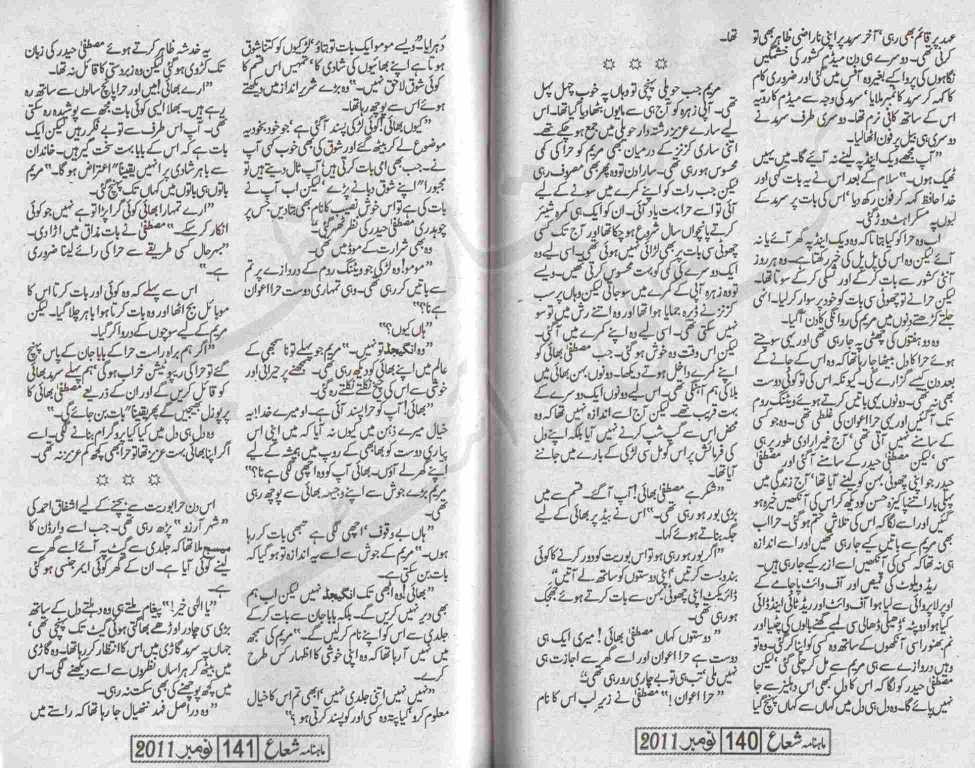 عہد پر قائم بھی رہی، آخر سرمد پر اپنی ناراضی ظاہر بھی تو
کرنی تھی۔ دوسرے ہی دن میڈم کشور کی خشمگیں
نگاہوں کی پروا کیے بغیر وہ آفس میں گئی اور ضروری کام
کا کہہ کر سرمد کا نمبر ملایا، سرمد کی وجہ سے میڈم کا رویہ
اس کے ساتھ کافی نرم تھا۔ دوسری طرف سرمد نے
دوسری ہی بیل پر فون اٹھا لیا۔
"آپ مجھے ویک اینڈ پہ لینے نہ آئیے گا۔ میں یہیں
ٹھیک ہوں۔" سلام کے بعد اس نے یہ بات کہی اور
خدا حافظ کہہ کر فون رکھ دیا، اس کی بات پر سرمد کے
لبوں پہ مسکراہٹ دوڑ گئی۔
اب وہ حرا کو کیا بتاتا کہ وہ ویک اینڈ پہ گھر آئے یا نہ
آئے لیکن وہ اس کی پل پل کی خبر رکھتا ہے۔ وہ ہر روز
آنٹی کشور سے بات کر کے اور تسلی کر کے سوتا تھا۔
لیکن حرا نے چھوٹی سی بات کو خود پر سوار کر لیا۔ انہی
جلتے کڑھتے دنوں میں مریم کی روانگی کا دن آ گیا۔
وہ دو ہفتوں کی چھٹی پہ جا رہی تھی اور یہی سوچتے
ہوئے حرا کا دل بیٹھا جا رہا تھا کہ وہ اس کے جانے کے
بعد دن کیسے گزارے گی۔ کیونکہ اس کی تو کوئی دوست
بھی نہ تھی۔ دونوں یہی باتیں کرتے ہوئے ویٹنگ روم
تک آ گئیں اور یہی حرا اعوان کی غلطی تھی۔ وہ جو کسی
کے سامنے نہیں آتی تھی، آج غیر ارادی طور پر ہی
سہی، لیکن مصطفیٰ حیدر کے سامنے آ گئی اور مصطفیٰ
حیدر جو اپنی چھوٹی بہن کو لینے آیا تھا، آج زندگی میں
پہلی بار اتنے پاکیزہ حسن کو دیکھ کر اس کی آنکھیں خیرہ ہو
گئیں اور اسے لگا کہ اس کی تلاش ختم ہو گئی۔ حرا اب
بھی مریم سے باتیں کیے جا رہی تھیں اور اسے اندازہ
ہی نہ تھا کہ کسی کی آنکھیں اسے ازبر کیے جا رہی ہیں۔
ریڈ ویلوٹ کی قمیص اور آف وائٹ پاجامے کے
اوپر لاپروائی سے لیا ہوا آف وائٹ اور ریڈ ٹائی اینڈ ڈائی
کیا ہوا دوپٹہ، ڈھیلی ڈھالی سی لمبے گھنے بالوں کی چٹیا اور
غم بھنور اسی آنکھوں کے ساتھ وہ کسی کو اپنا کر گئی۔ وہ تو
وہیں دروازے سے ہی مریم سے مل کر چلی گئی، لیکن
مصطفیٰ حیدر کو لگا کہ اس کا دل بھی اس دہلیز سے جا
نہیں پائے گا۔ وہ دل ہی دل میں کہاں سے کہاں پہنچ گیا
تھا۔
☼ ☼ ☼
مریم جب حویلی پہنچی تو وہاں پہ خوب چہل پہل
تھی۔ آپی زہرہ کو آج ہی سے مایوں بٹھا دیا گیا تھا۔ اس
لیے سارے عزیز رشتہ دار حویلی میں جمع ہو چکے تھے۔
اتنی ساری کزنز کے درمیان بھی مریم کو حرا کی کمی
محسوس ہو رہی تھی۔ سارا دن تو وہ پھر بھی مصروف رہی
لیکن جب رات کو اپنے کمرے میں سونے کے لیے
آئی تو اسے حرا بہت یاد آئی۔ ان کو ایک ہی کمرہ شیئر
کرتے پانچواں سال شروع ہو چکا تھا اور آج تک کسی
چھوٹی سی بات پر بھی لڑائی نہیں ہوئی تھی۔ اسی لیے وہ
ایک دوسرے کی کمی بہت محسوس کرتی تھیں۔ ویسے
تو وہ زہرہ آپی کے کمرے میں سو جاتی لیکن وہاں پر سب
کزنز نے ڈیرہ جمایا ہوا تھا اور وہ اتنے رش میں تو سو
نہیں سکتی تھی۔ اسی لیے وہ اپنے کمرے میں آ گئی۔
لیکن اس وقت وہ خوش ہو گئی۔ جب مصطفیٰ بھائی کو
اپنے کمرے داخل ہوتے دیکھا۔ دونوں بہن بھائی میں
بلا کی ہم آہنگی تھی۔ اس لیے دونوں ایک دوسرے کے
بہت قریب تھے۔ لیکن آج اسے اندازہ نہیں تھا کہ وہ
محض اس سے گپ شپ کرنے نہیں آیا بلکہ اپنے دل
کی فرمائش پر اس کومل سی لڑکی کے بارے میں جاننے
آیا تھا۔
"شکر ہے مصطفیٰ بھائی! آپ آ گئے۔ قسم سے میں
بڑی بور ہو رہی تھی۔" اس نے بیڈ پر بھائی کے لیے
جگہ بناتے ہوئے کہا۔
"اگر بور ہو رہی ہو تو اس بوریت کو دور کرنے کا کوئی
بندوبست کرتیں، اپنی دوستوں کو ساتھ لے آتیں"
ڈائریکٹ اپنی چھوٹی بہن سے بات کرتے ہوئے جھجک
ہو رہی تھی۔
"دوستوں کہاں مصطفیٰ بھائی! میری ایک ہی
دوست ہے حرا اعوان اور اسے گھر سے اجازت ہی
نہیں ملی تب ہی تو بے چاری رو رہی تھی۔"
"حرا اعوان!" مصطفیٰ نے زیر لب اس کا نام
ماہنامہ شعاع 140 نومبر 2011
دُہرایا۔ "ویسے مومو ایک بات تو بتاؤ، لڑکیوں کو کتنا شوق
ہوتا ہے اپنے بھائیوں کی شادی کا، تمہیں اس قسم کا
کوئی شوق لاحق نہیں۔" وہ بڑے شریر انداز میں دیکھتے
ہوئے اس سے پوچھ رہا تھا۔
"کیوں بھائی! کوئی لڑکی پسند آ گئی ہے، جو خود بخود یہ
موضوع لے کر بیٹھ گئے اور شوق کی بھی خوب کہی آپ
نے۔ جب بھی امی بات کرتی ہیں، آپ ٹال دیتے ہیں تو
مجبوراً اپنے شوق دبانے پڑتے، لیکن اب آپ نے
بات کی ہے تو اس خوش نصیب کا نام بھی بتا دیں، جس پر
چوہدری مصطفیٰ حیدر کی نظر ٹھہر گئی۔"
وہ بھی شرارت کے موڈ میں تھی۔
"مومو! وہ لڑکی جو ویٹنگ روم کے دروازے پر تم
سے باتیں کر رہی تھی۔ وہی تمہاری دوست حرا اعوان
ہے نا؟"
"ہاں کیوں؟"
"وہ انگیجڈ تو نہیں۔" مریم جو پہلے تو نا سمجھی کے
عالم میں اپنے بھائی کو دیکھ رہی تھی۔ سمجھنے پر حیرانی اور
خوشی سے اس کی چیخ نکلتے نکلتے رہ گئی۔
"بھائی! آپ کو حرا پسند آئی ہے۔ او میرے خدا! یہ
خیال میرے ذہن میں کیوں نہ آیا کہ میں اپنی اس
پیاری دوست کو بھابھی کے روپ میں ہمیشہ کے لیے
اپنے گھر لے آؤں۔ بھائی آپ کو وہ اچھی لگی ہے نا؟"
مریم بڑے جوش سے اپنے وجیہہ بھائی سے پوچھ رہی
تھی۔
"ہاں بے وقوف! اچھی لگی ہے تبھی بات کر رہا
ہوں۔" مریم کے جوش سے اسے یہ اندازہ تو ہو گیا کہ
بات بن سکتی ہے۔
"بھائی! وہ ابھی تک انگیجڈ نہیں لیکن اب ہم
بھی دیر نہیں کریں گے۔ بلکہ بابا جان سے بات کر کے
جلدی سے اس کو اپنے نام کر لیں گے۔" مریم کی سمجھ
میں نہیں آ رہا تھا کہ وہ اپنی خوشی کا اظہار کس طرح
کرے۔
"نہیں نہیں اتنی جلدی نہیں، ابھی تم اس کا خیال
معلوم کرو، کیا پتہ وہ کسی اور کو پسند کرتی ہو؟"
یہ خدشہ ظاہر کرتے ہوئے مصطفیٰ حیدر کی زبان
تک کڑوی ہو گئی لیکن وہ زبردستی کا قائل نہ تھا۔
"ارے بھائی! میں اور حرا پانچ سالوں سے ساتھ رہ
رہے ہیں۔ بھلا ایسی کوئی بات مجھ سے پوشیدہ رہ سکتی
تھی۔ آپ اس طرف سے تو بے فکر رہیں لیکن ایک
بات ہے کہ اس کے بابا بہت سخت گیر ہیں۔ خاندان
سے باہر شادی پر انہیں یقیناً اعتراض ہو گا۔" مریم
باتوں ہی باتوں میں کہاں تک پہنچ گئی۔
"ارے تمہارا بھائی کوئی گرا پڑا تو ہے نہیں جو کوئی
انکار کر سکے۔" مصطفیٰ نے بات مذاق میں اڑا دی۔
"بہرحال کسی طریقے سے حرا کی رائے لینا ضروری
ہے۔"
اس سے پہلے کہ وہ کوئی اور بات کرتا اس کا
موبائل بج اٹھا اور وہ بات کرتا ہوا باہر چلا گیا۔ لیکن
مریم کے لیے سوچوں کے در وا کر گیا۔
"اگر ہم براہ راست حرا کے بابا جان کے پاس پہنچ
گئے تو حرا کی ریپوٹیشن خراب ہو گی، ہم پہلے سرمد بھائی
کو قائل کریں گے اور ان کے ذریعے مصطفیٰ بھائی کا
پرپوزل بھیجیں گے پھر یقیناً بات بن جائے گی۔"
وہ دل ہی دل میں کیا کیا پروگرام بنانے لگی۔ اسے
اگر اپنا بھائی بہت عزیز تھا تو حرا بھی کچھ کم عزیز نہ تھی۔
☼ ☼ ☼
اس دن حرا بوریت سے بچنے کے لیے اشفاق احمد کی
"شہر آرزو" پڑھ رہی تھی۔ جب اسے وارڈن کا
میسج ملا تھا کہ جلدی سے گیٹ پہ آئے اسے گھر سے
لینے کوئی آیا ہے۔ ان کے گھر کوئی ایمرجنسی ہو گئی
ہے۔
"یا الٰہی خیر!" پیغام ملتے ہی وہ دہلتے دل کے ساتھ
بڑی سی چادر اوڑھے بھاگتی ہوئی گیٹ تک پہنچی تھی،
جہاں پہ سرمد گاڑی میں اس کا انتظار کر رہا تھا۔ وہ گاڑی
میں بیٹھ کر ہراساں نظروں سے اسے دیکھنے لگی۔ اس
میں کچھ پوچھنے کی بھی سکت نہ رہی۔
"وہ دراصل فہد ننھیال جا رہا تھا کہ راستے میں
ماہنامہ شعاع 141 نومبر 2011